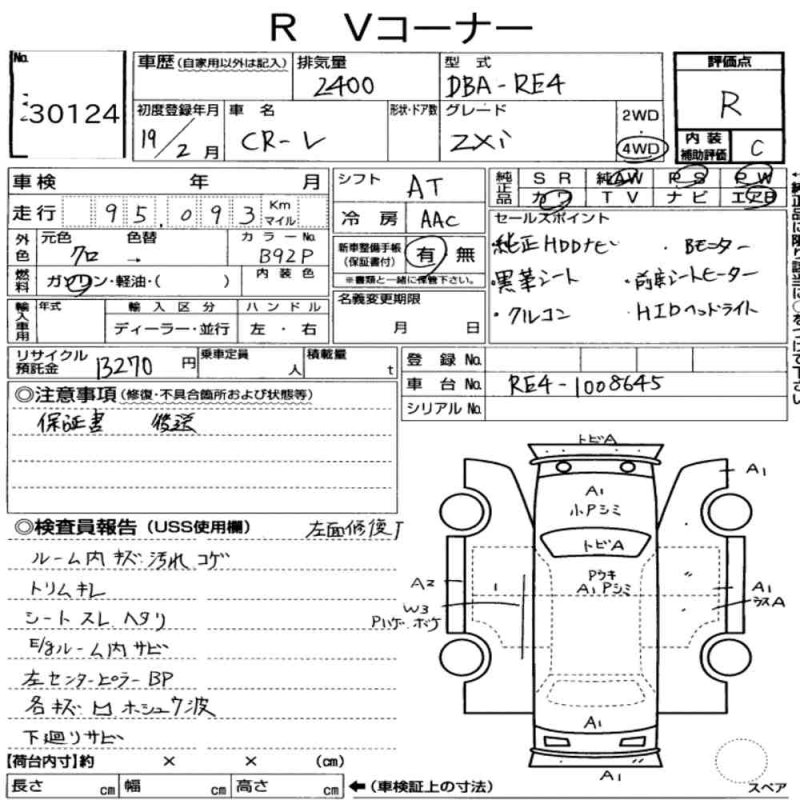 R Vコーナー
No.
30124
車歴 (自家用以外は記入)
排気量
2400
型式
DBA-RE4
評価点
R
内装
補助評価
C
初度登録年月
19/2月
車名
CR-V
形状・ドア数
グレード
ZXi
2WD
4WD
車検 年 月
走行 95,093 Km マイル
外色
元色 色替
クロ →
カラーNo.
B92P
燃料
ガソリン・軽油・( )
内装色
シフト
AT
冷房
AAC
新車整備手帳
(保証書付)
有・無
※書類と一緒に保管下さい。
名義変更期限
月 日
純正品
SR 純AW PS PW
カワ TV ナビ エアB
セールスポイント
・純正HDDナビ ・Bモニター
・黒革シート ・前席シートヒーター
・クルコン ・HIDヘッドライト
輸入車用
年式
輸入区分
ハンドル
ディーラー・並行
左・右
リサイクル
預託金
13270 円
乗車定員
人
積載量
t
登録No.
車台No.
RE4-1008645
シリアルNo.
◎注意事項 (修復・不具合箇所および状態等)
保証書 後送
◎検査員報告 (USS使用欄)
左面修復T
ルーム内 キズ 汚れ コゲ
トリムキレ
シート スレ ヘタリ
E/gルーム内サビ
左センターピラーBP
各キズ凹ホシュウ波
下廻リサビ
【荷台内寸】約 × × (cm)
長さ cm 幅 cm 高さ cm
←(車検証上の寸法)
トビA
A1
小Pシミ
トビA
Pウキ
A1 Pシミ
A1
A2
W3
Pハゲ ボケ
A1
ラスA
A1
A1
スペア